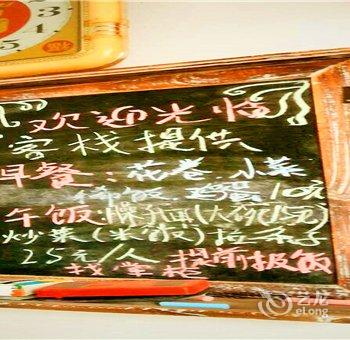 欢迎光临
客栈提供
早餐：花卷.小菜
稀饭.鸡蛋 10元
午饭:臊子面(大碗15元)
炒菜(米饭)拉条子
25元/人 提前报饭
找掌柜
艺龙
eLong